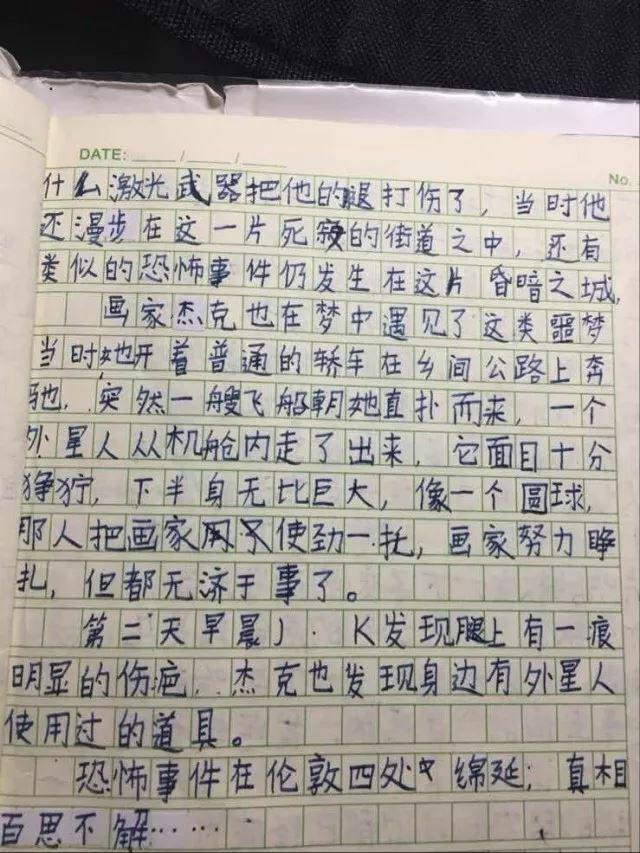 DATE: ___/___/___
No.
什么激光武器把他的腿打伤了，当时他
还漫步在这一片死寂的街道之中，还有
类似的恐怖事件仍发生在这片昏暗之城，
画家杰克也在梦中遇见了这类噩梦
当时她开着普通的轿车在乡间公路上奔
驰，突然一艘飞船朝她直扑而来，一个
外星人从机舱内走了出来，它面目十分
狰狞，下半身无比巨大，像一个圆球，
那人把画家使劲一托，画家努力睁
扎，但都无济于事了。
第二天早晨J·K发现腿上有一痕
明显的伤疤，杰克也发现身边有外星人
使用过的道具。
恐怖事件在伦敦四处中绵延，真相
百思不解……